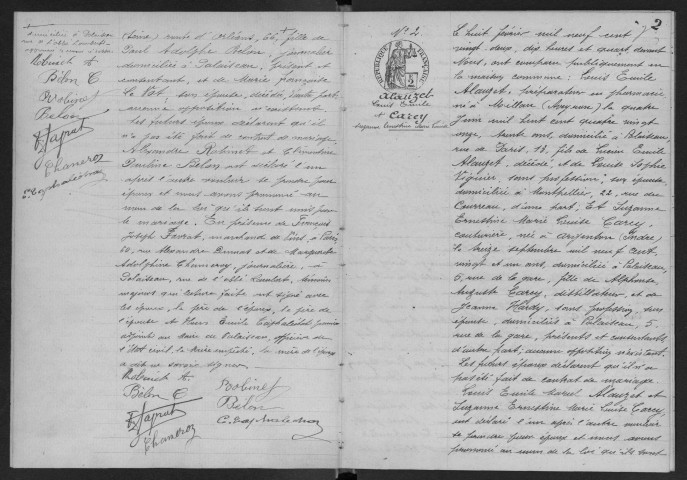 domiciliés à Palaiseau
Robinet A
Bélon C
Robinet
Belon
F. Japrat
Thaneroz
(Seine) ruinée d'Orléans, 66, fille de
Paul Adolphe Belon, journalier
domicilié à Palaiseau, présent et
consentant, et de Marie Françoise
Le Tot, son épouse, décédée, d'autre part,
aucune opposition n'existant.
Les futurs époux déclarent qu'il
n'a pas été fait de contrat de mariage.
Alexandre Robinet et Clémentine
Pauline Belon ont déclaré l'un
après l'autre vouloir se prendre pour
époux et nous avons prononcé au
nom de la loi qu'ils sont unis par
le mariage. En présence de François
Joseph Favrat, marchand de vins, à Paris
rue Alexandre Dumas et de Marguerite
Adolphine Thaneroy, journalière, à
Palaiseau, rue de
qui lecture faite ont signé avec
les époux, le père de l'épouse, le père de
l'épouse et Nous Emile
adjoint au maire de Palaiseau, officier de
l'état civil, le maire empêché, la mère de l'époux
a dit ne savoir signer.
Robinet A.
Bélon C
F. Japrat
Thaneroz
Robinet
Bélon
N° 2
RÉPUBLIQUE FRANÇAISE
Alauzet
Louis Emile
et Carcy
Suzanne Ernestine Marie Louise
2
Le huit février mil neuf cent
vingt-deux, dix heures et quart, devant
Nous, ont comparu publiquement en
la maison commune : Louis Emile
Alauzet, préparateur en pharmacie
né à Millau (Aveyron) le quatre
juin mil huit cent quatre vingt
onze, trente ans, domicilié à Palaiseau,
rue de Paris, 18, fils de Lucien Emile
Alauzet, décédé, et de Louise Sophie
Viguier, sans profession, son épouse,
domiciliée à Montpellier, 22, rue du
Courreau, d'une part; Et Suzanne
Ernestine Marie Louise Carcy,
couturière, née à Argenton (Indre)
le treize septembre mil neuf cent,
vingt et un ans, domiciliée à Palaiseau,
5, rue de la gare, fille de Alphonse
Auguste Carcy, distillateur, et de
Jeanne Hardy, sans profession, son
épouse, domiciliés à Palaiseau, 5
rue de la gare, présents et consentants
d'autre part, aucune opposition n'existant.
Les futurs époux déclarent qu'il n'a
pas été fait de contrat de mariage.
Louis Emile Alauzet et
Suzanne Ernestine Marie Louise Carcy,
ont déclaré l'un après l'autre vouloir
se prendre pour époux et nous avons
prononcé au nom de la loi qu'ils sont